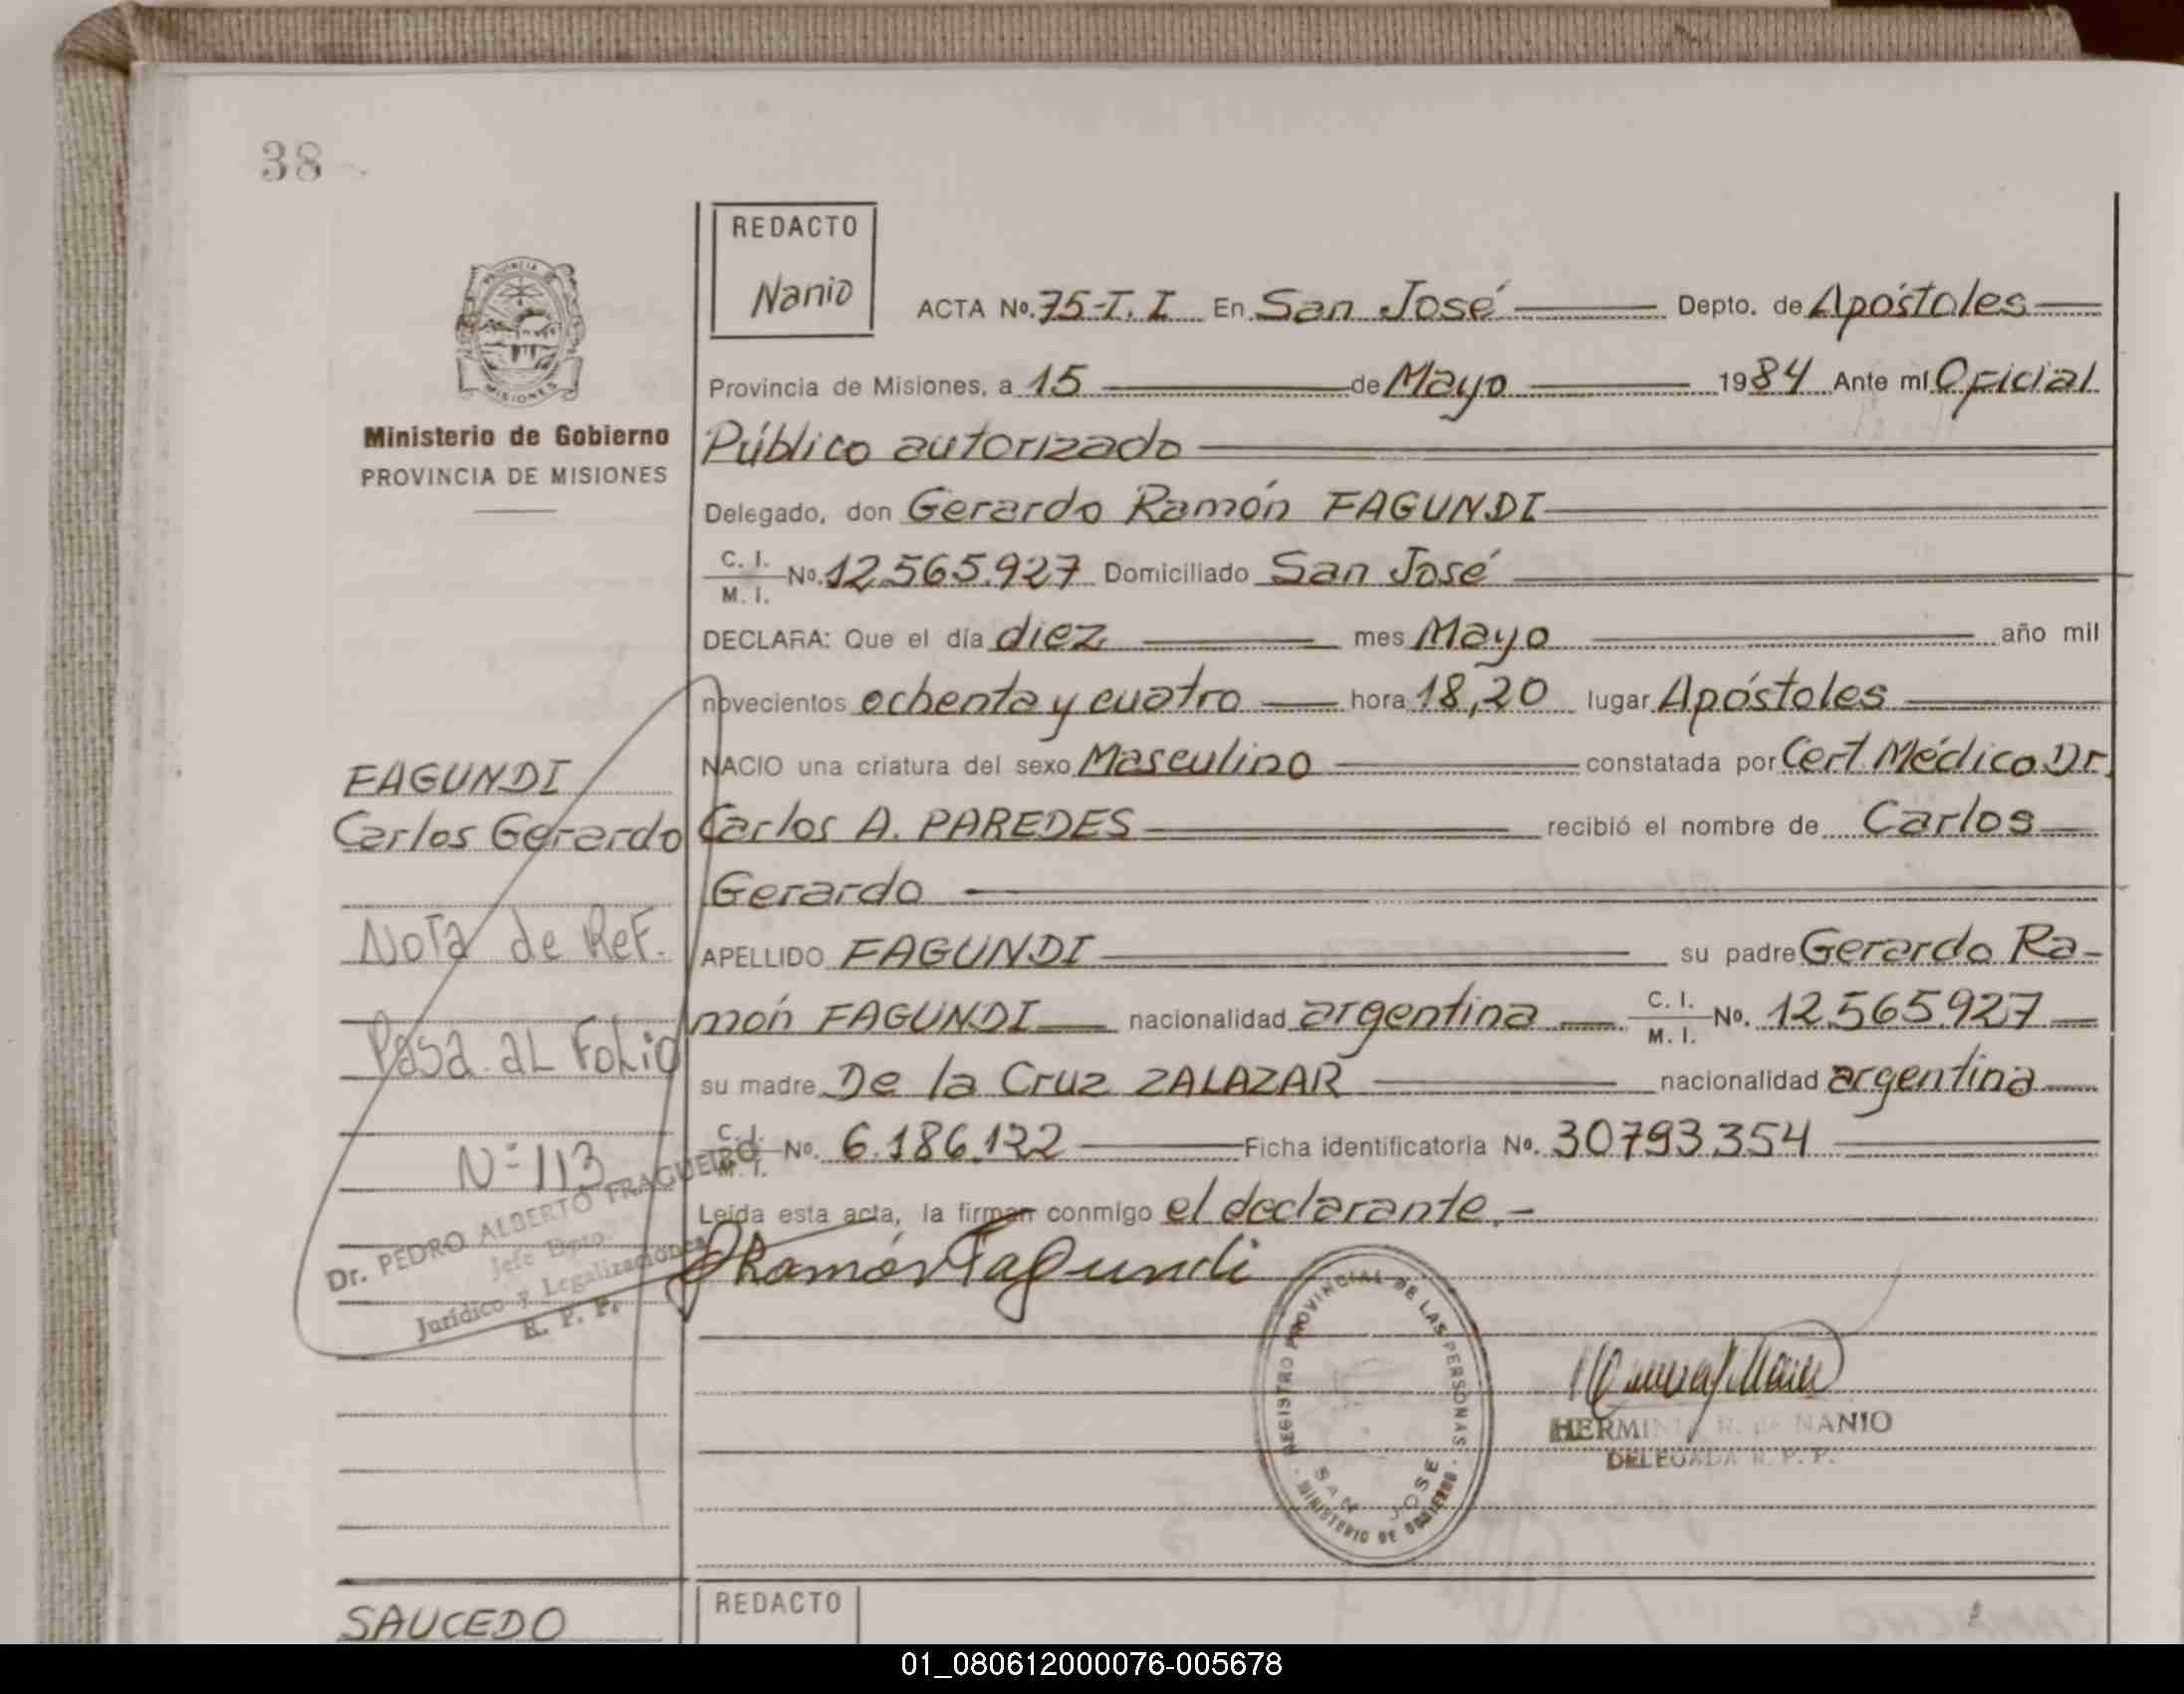 38
REDACTO
Nanio
ACTA No. 75-T. I En San José Depto. de Apóstoles
Provincia de Misiones, a 15 de Mayo 1984 Ante mí Oficial
Público autorizado
Delegado, don Gerardo Ramón FAGUNDI
C. I.
M. I. No. 12.565.927 Domiciliado San José
DECLARA: Que el día diez mes Mayo año mil
novecientos ochenta y cuatro hora 18,20 lugar Apóstoles
NACIO una criatura del sexo Masculino constatada por Cert. Médico Dr.
Carlos A. PAREDES recibió el nombre de Carlos
Gerardo
APELLIDO FAGUNDI su padre Gerardo Ra-
món FAGUNDI nacionalidad argentina C. I.
M. I. No. 12.565.927
su madre De la Cruz ZALAZAR nacionalidad argentina
C. I.
M. I. No. 6.186.122 Ficha identificatoria No. 30793.354
Leída esta acta, la firman conmigo el declarante.-
Ramón Fagundi
PROVINCIA DE
MISIONES
Ministerio de Gobierno
PROVINCIA DE MISIONES
FAGUNDI
Carlos Gerardo
Nota de Ref.
Pasa al Folio
Nº 113
Dr. PEDRO ALBERTO FRAGUEIRO
Jefe Dpto.
Jurídico y Legalizaciones
R. P. P.
REGISTRO PROVINCIAL DE LAS PERSONAS
SAN JOSE
MINISTERIO DE GOBIERNO
HERMINIA R. de NANIO
DELEGADA R. P. P.
SAUCEDO
REDACTO
01_080612000076-005678